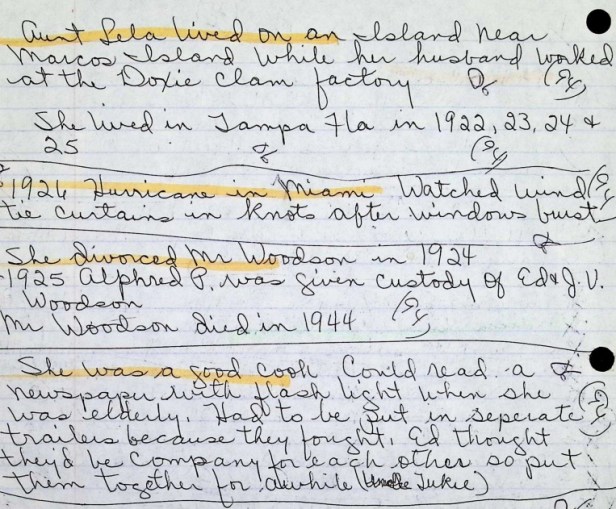 Aunt Lela lived on an Island near
Marcos Island while her husband worked
at the Doxie Clam factory
She lived in Tampa Fla in 1922, 23, 24 &
25
1926 Hurricane in Miami Watched wind
tie curtains in knots after windows burst
She divorced Mr Woodson in 1924
1925 Alphred P. was given custody of Ed & J.V.
Woodson
Mr Woodson died in 1944
She was a good cook Could read a
newspaper with flash light when she
was elderly. Had to be put in seperate
trailers because they fought. Ed thought
they'd be company for each other so put
them together for awhile (Uncle Jukie)